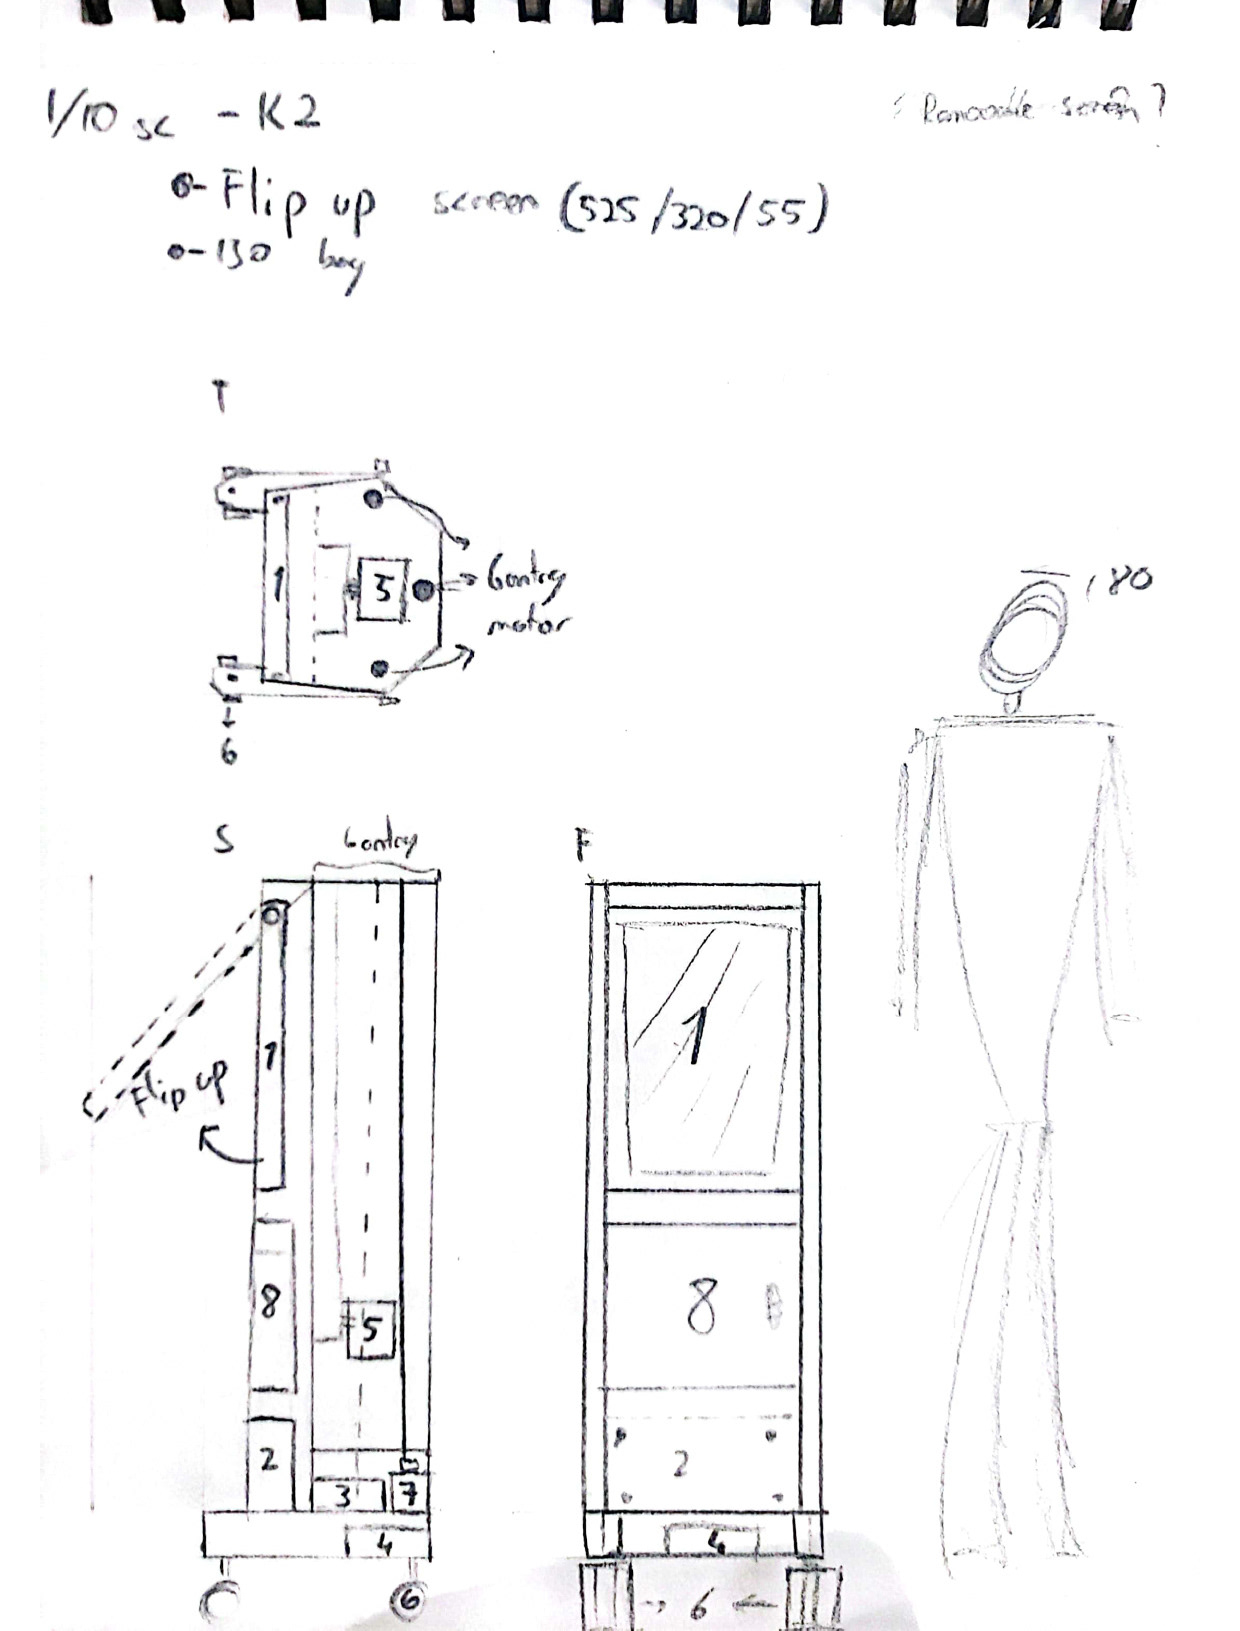 1/10 sc - K2
? Removable screen ?
- Flip up screen (525/320/55)
- 130 boy
T
1
5
Gantry
motor
6
180
S
Gantry
F
1
1
Flip up
8
8
5
2
2
3
7
4
4
6
6